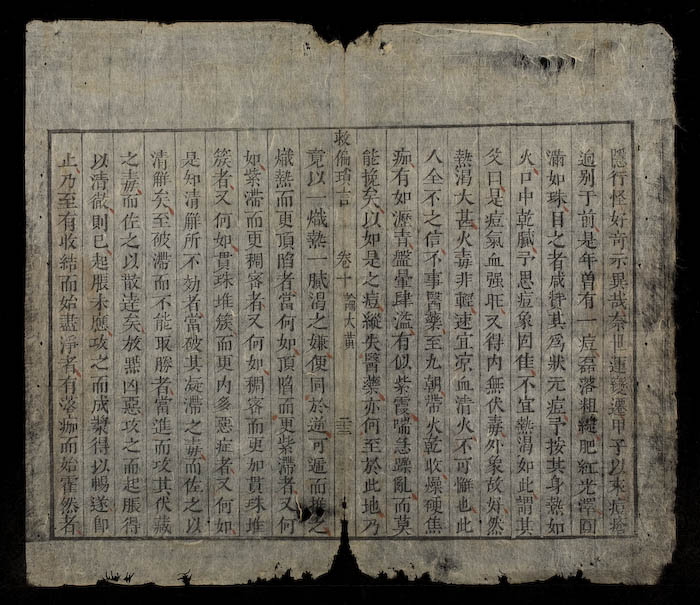 隱行怪好奇示異哉奈世運變遷甲子以來痘疹
逈别于前是年曽有一痘磊落粗綻肥紅光澤圓
滿如珠目之者咸賛其爲狀元痘予按其身熱如
火口中乾膩予思痘象固佳不宜熱渴如此謂其
父曰是痘氣血强旺又得内無伏毒外象故好然
熱渴大甚火毒非輕速宜凉血清火不可懈也此
人全不之信不事醫藥至九朝帶火乾收燥硬焦
痂有如瀝青盤暈肆濫有似紫霞喘急躁亂而莫
能挽矣以如是之痘縱失醫藥亦何至於此地乃
救偏瑣言 卷十 論大黄 三三
竟以一熾熱一膩渴之嫌便同於逆可遁而推之
熾熱而更頂陷者當何如頂陷而更紫滯者又何
如紫滯而更稠密者又何如稠密而更加貫珠堆
簇者又何如貫珠堆簇而更内多惡症者又何如
是知清解所不効者當破其凝滯之毒而佐之以
清解矣至破滯而不能取勝者當進而攻其伏藏
之毒而佐之以散逹矣故罴凶惡攻之而起脹得
以清漪則已起脹未應攻之而成漿得以暢遂卽
止乃至有收結而始盡淨者有落痂而始霍然者